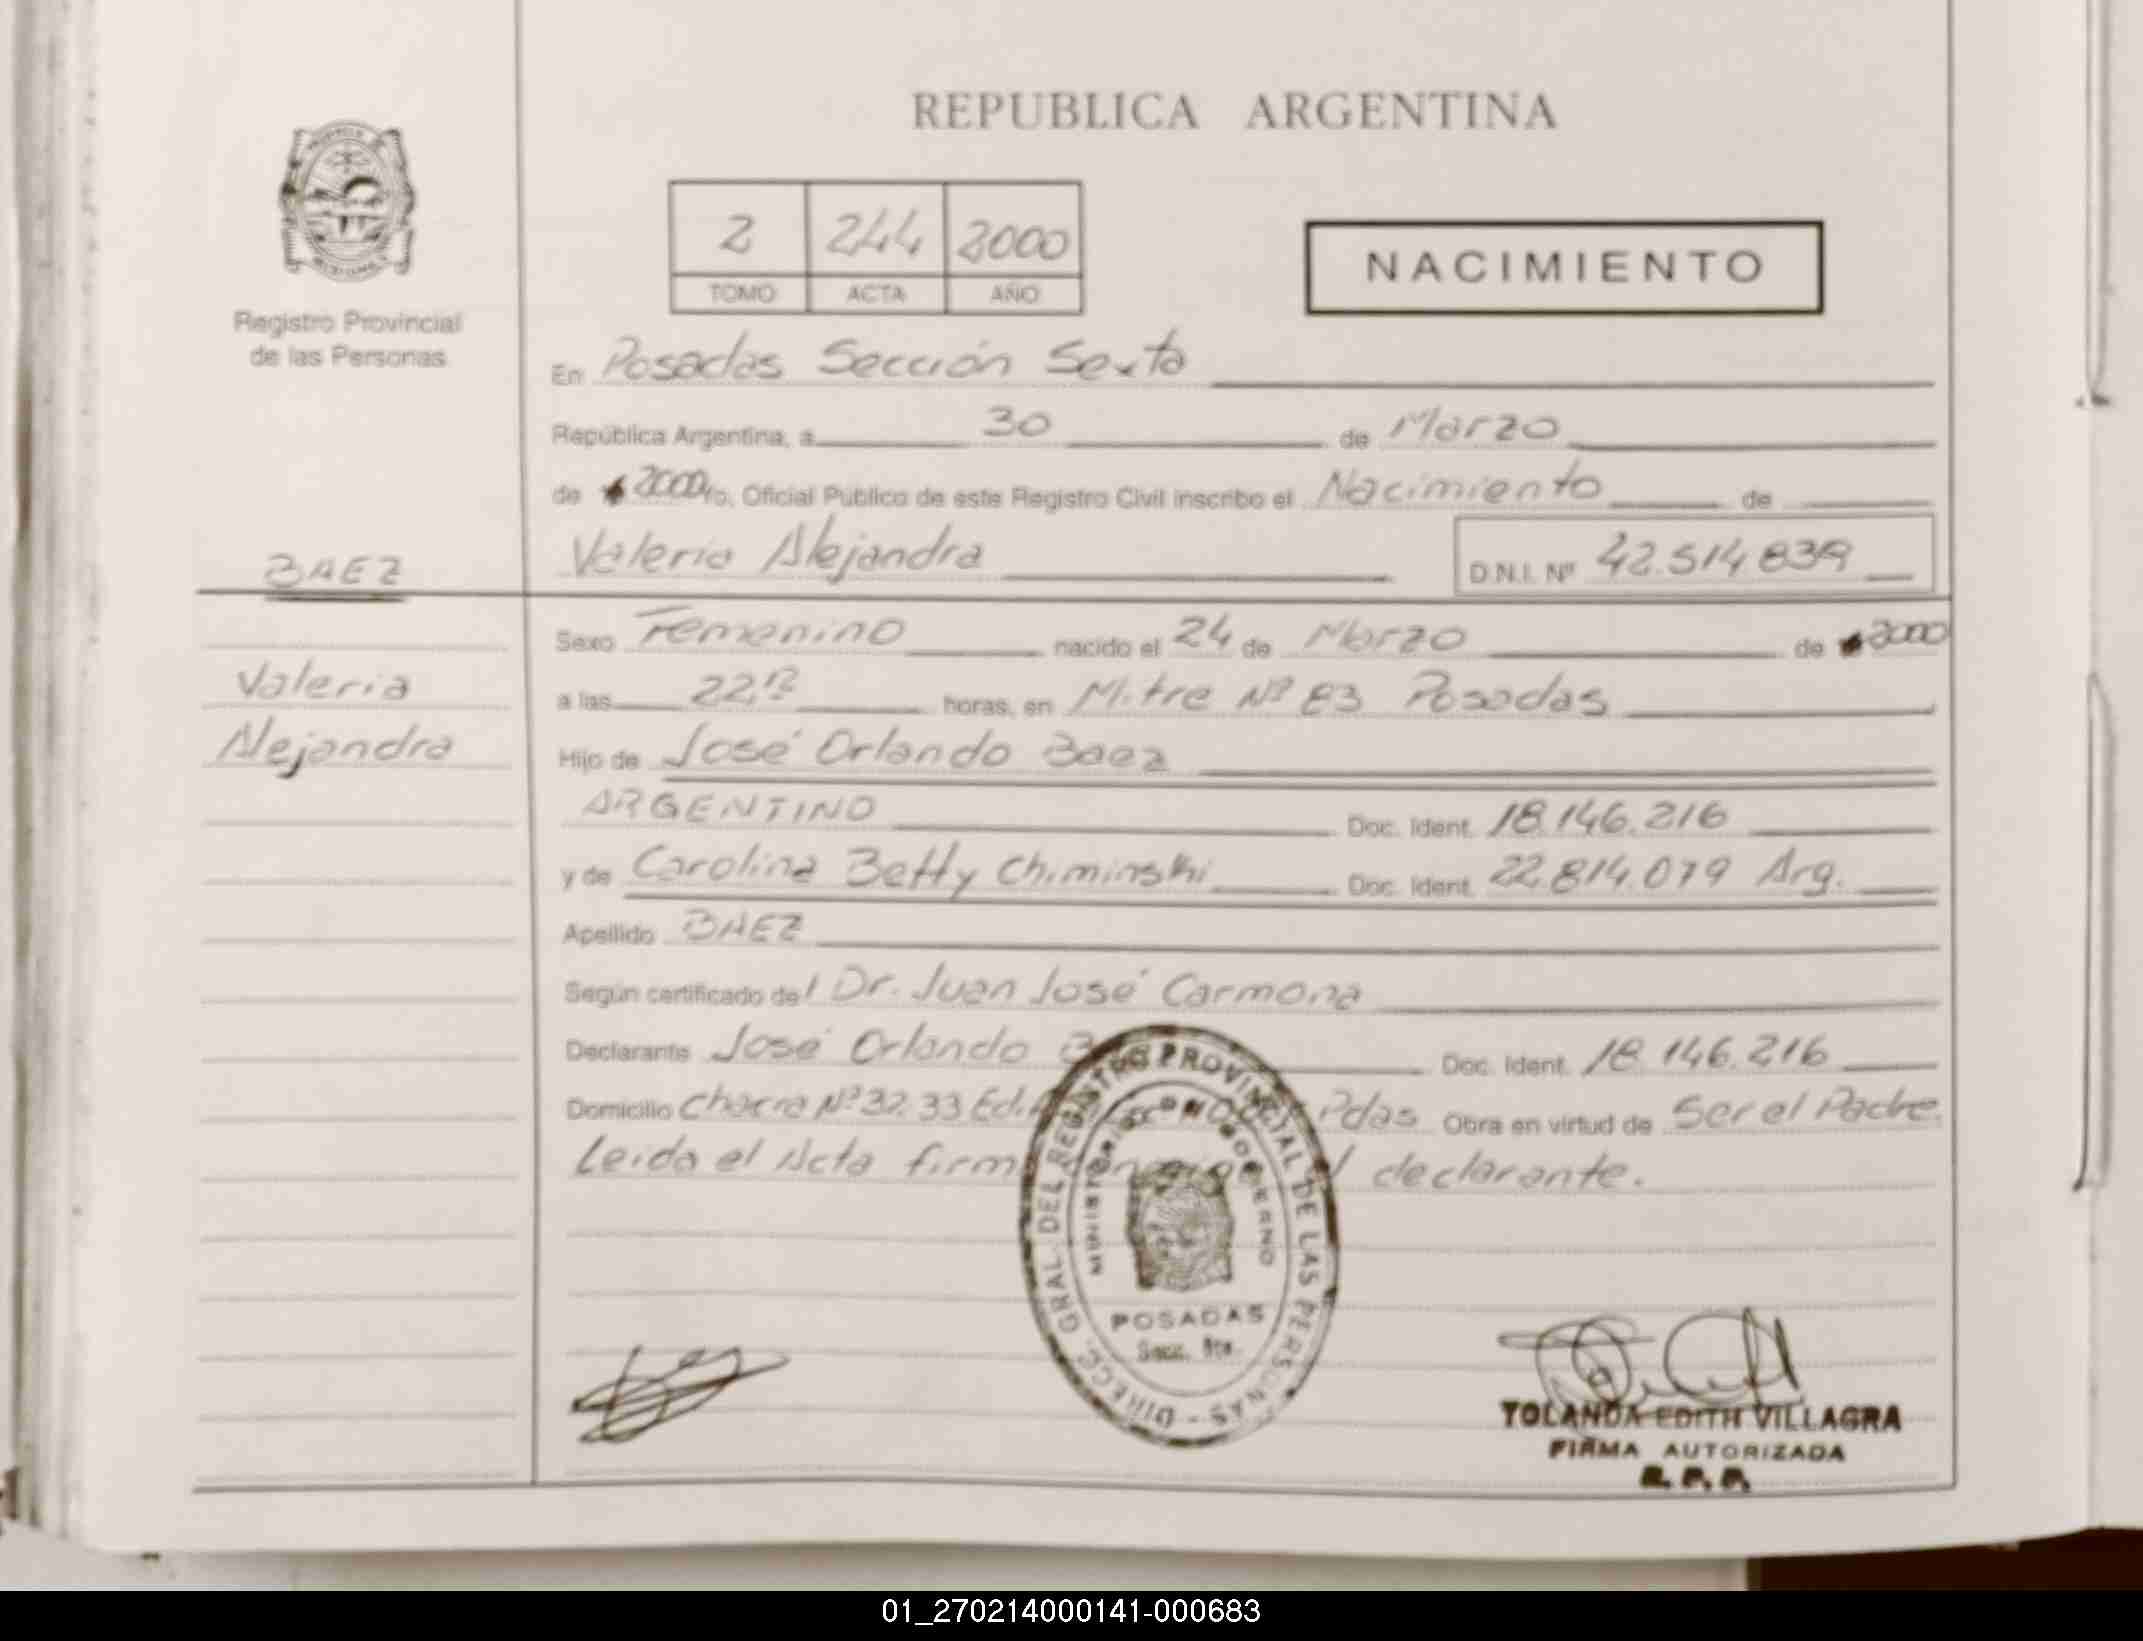 REPUBLICA ARGENTINA
2 244 2000
TOMO ACTA AÑO
NACIMIENTO
Registro Provincial
de las Personas
En Posadas Sección Sexta
República Argentina, a 30 de Marzo
de 2000 yo, Oficial Público de este Registro Civil inscribo el Nacimiento de
Valeria Alejandra D.N.I. Nº 42.514.839
BAEZ
Valeria
Alejandra
Sexo Femenino nacido el 24 de Marzo de 2000
a las horas, en Mitre Nº 83 Posadas
Hijo de José Orlando Baez
ARGENTINO Doc. Ident. 18.146.216
y de Carolina Betty Chiminski Doc. Ident. 22.814.079 Arg.
Apellido BAEZ
Según certificado del Dr. Juan José Carmona
Declarante José Orlando Doc. Ident. 18.146.216
Domicilio Chacra Nº 32.33 Pdas Obra en virtud de Ser el Padre.
Leida el Acta declarante.
DIRECC. GRAL. DEL REGISTRO PROVINCIAL DE LAS PERSONAS
MINISTERIO DE GOBIERNO
POSADAS
Secc. 6ta.
YOLANDA EDITH VILLAGRA
FIRMA AUTORIZADA
R. P. P.
01_270214000141-000683